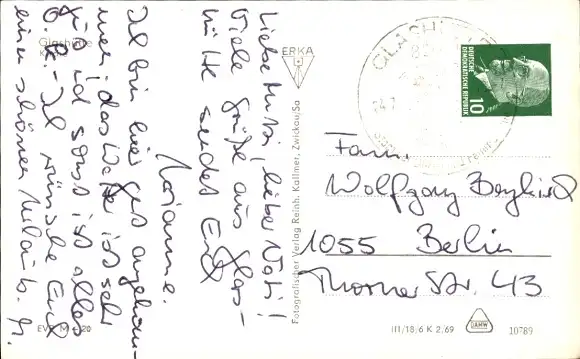 Liebe Mutti, lieber Vati!
Viele Grüße aus Glas-
hütte sendet Euch
Marianne.
Ich bin hier gut angekom-
men, das Wetter ist sehr
gut und sonst ist alles
o.k. Ich wünsche Euch
einen schönen Urlaub. M.
Glashütte
ERKA
Fotografischer Verlag Reinh. Kallmer, Zwickau/Sa
GLASHÜTTE
DEUTSCHE
DEMOKRATISCHE REPUBLIK
10
Fam.
Wolfgang
1055 Berlin
Thorner Str. 43
III/18/6 K 2/69
DAMW
10789